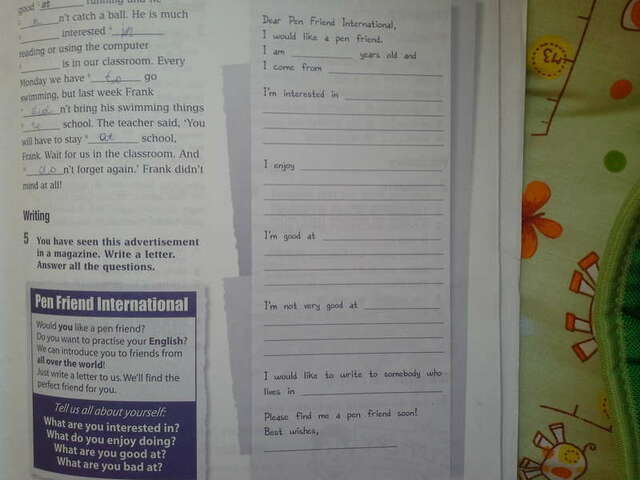 good at running and he
n't catch a ball. He is much
interested in
reading or using the computer
is in our classroom. Every
Monday we have to go
swimming, but last week Frank
did n't bring his swimming things
to school. The teacher said, 'You
will have to stay at school,
Frank. Wait for us in the classroom. And
do n't forget again.' Frank didn't
mind at all!
Writing
5 You have seen this advertisement
in a magazine. Write a letter.
Answer all the questions.
Pen Friend International
Would you like a pen friend?
Do you want to practise your English?
We can introduce you to friends from
all over the world!
Just write a letter to us. We'll find the
perfect friend for you.
Tell us all about yourself:
What are you interested in?
What do you enjoy doing?
What are you good at?
What are you bad at?
Dear Pen Friend International,
I would like a pen friend.
I am years old and
I come from
I'm interested in
I enjoy
I'm good at
I'm not very good at
I would like to write to somebody who
lives in
Please find me a pen friend soon!
Best wishes,